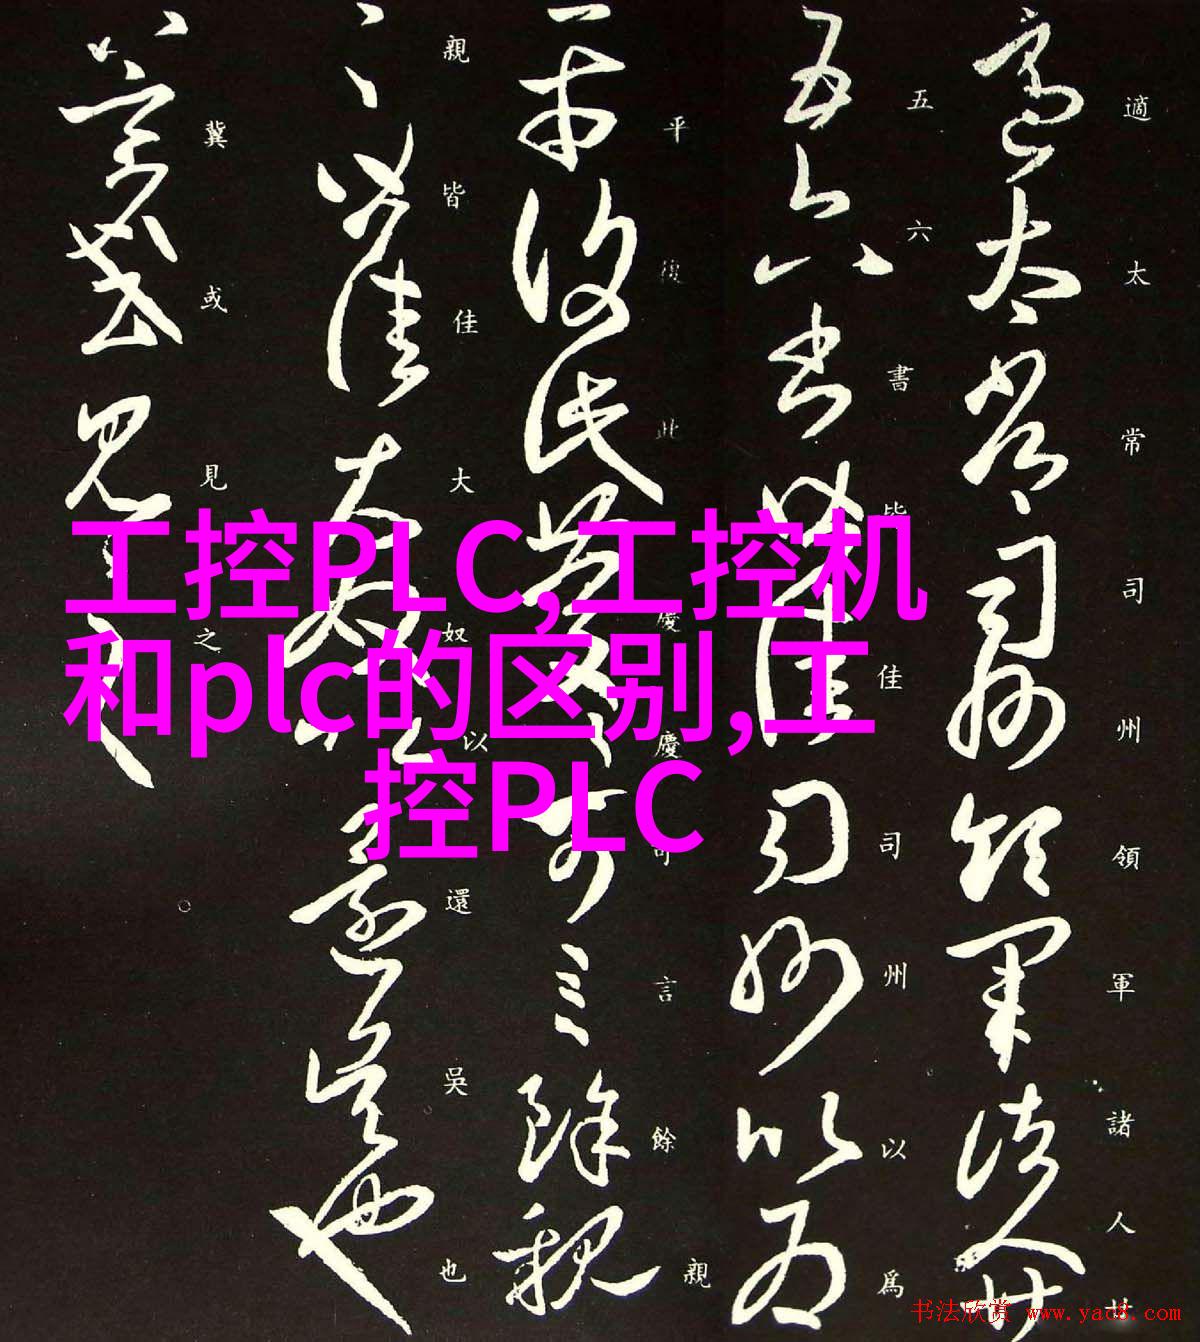 適太常司州領軍諸人廿
五六書皆佳司州以為
平復此慶慶可言餘親
親皆佳大奴以還吳也
冀或見之
工控PLC,工控机
和plc的区别,工
控PLC
书法欣赏 www.yac8.com